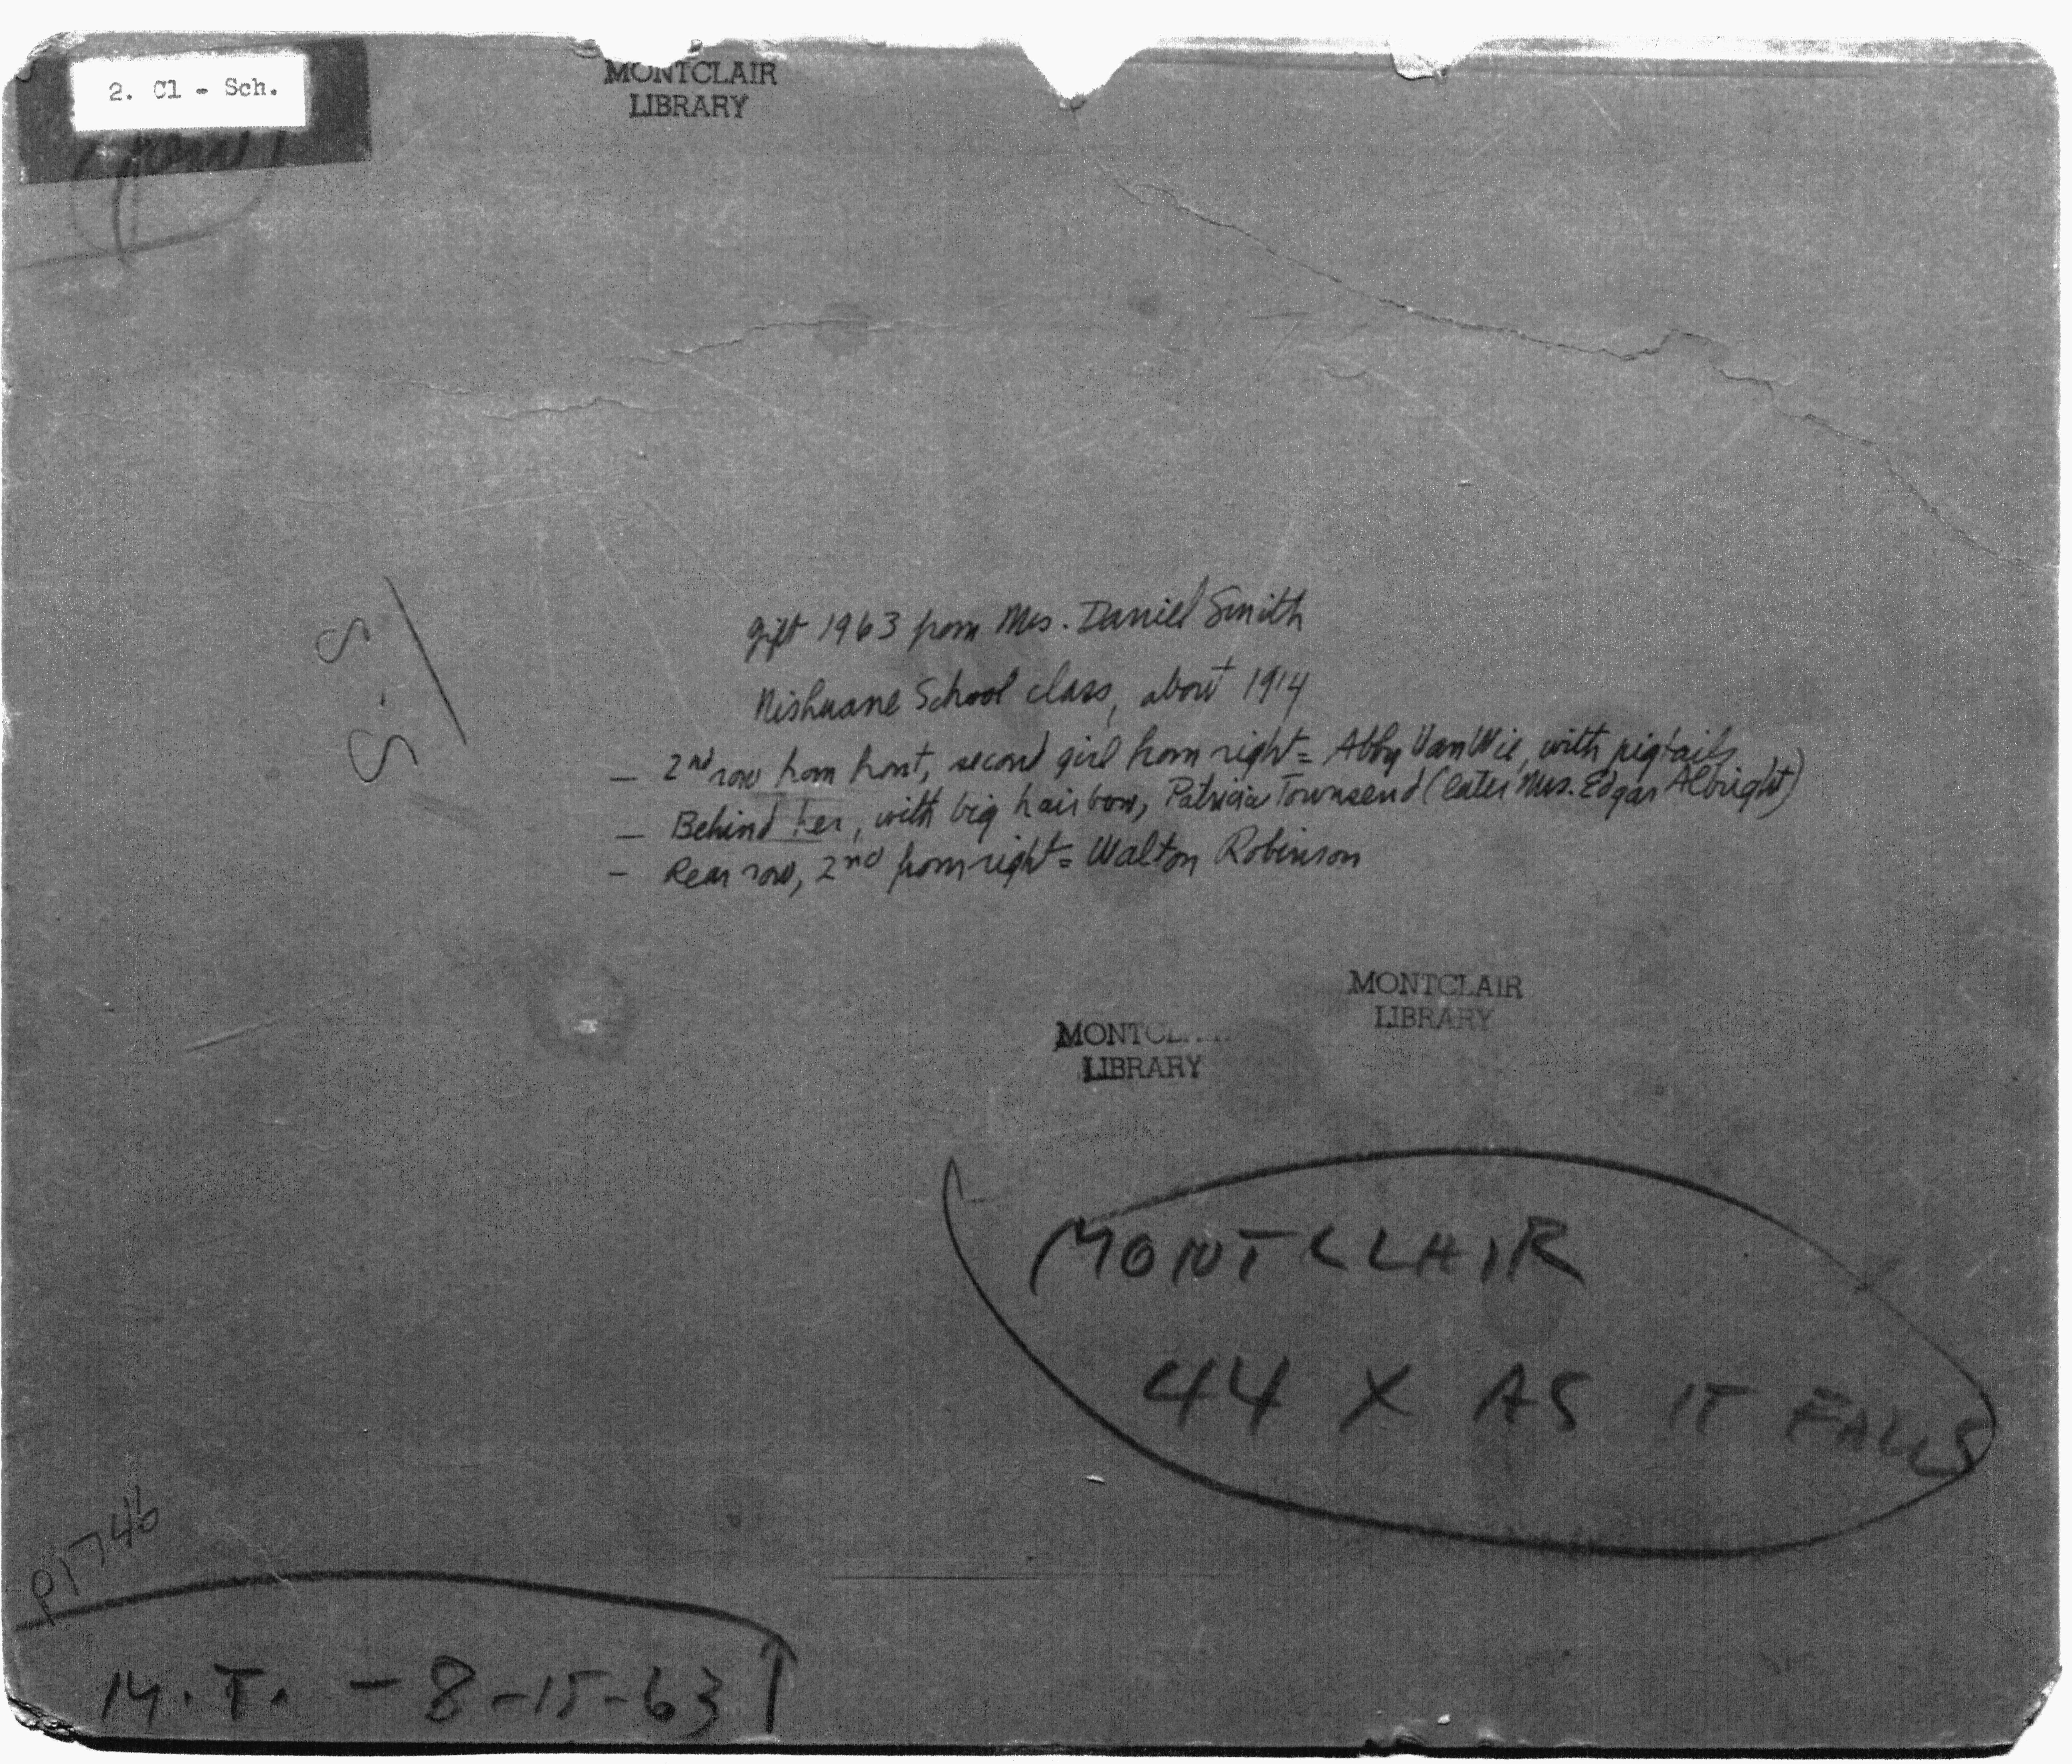 2. Cl - Sch.
MONTCLAIR
LIBRARY
S-S
gift 1963 from Mrs. Daniel Smith
Nishuane School class, about 1914
— 2nd row from front, second girl from right = Abby Van Wie, with pigtails
— Behind her, with big hairbow, Patricia Townsend (later Mrs. Edgar Albright)
- Rear row, 2nd from right = Walton Robinson
MONTCLAIR
LIBRARY
LIBRARY
MONTCLAIR
44 X AS IT FALLS
P1746
M.T. - 8-15-63